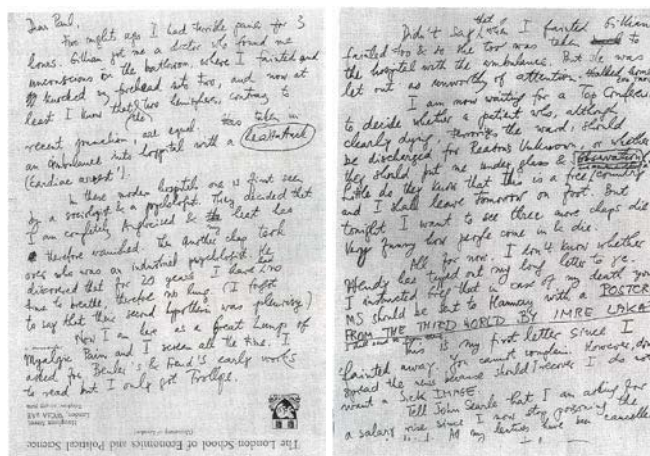 Dear Paul,
Five nights ago I had terrible pains for 3
hours. Gillian got me a doctor who found me
unconscious in the bathroom, where I fainted and
knocked my forehead into two, and now at
least I know that the two hemispheres, contrary to
recent are equal. Was taken in
an ambulance into hospital with a Heart Attack
(Cardiac arrest').
In these modern hospitals one is first seen
by a sociologist & a psychologist. They decided that
I am completely & the heat has
therefore vanished. Then another chap took
over who was an industrial psychologist. He
discovered that for 20 years I have had no
time to breathe, therefore no lung. (I forgot
to say that their second hypothesis was pleurisy.)
Now I am here as a great lump of
Myalgic Pain and I scream all the time. I
asked for & Freud's early works
to read but I only got Trollope.
The London School of Economics and Political Science
(University of London)
Houghton Street,
London, WC2A 2AE
Didn't say that when I fainted Gillian
fainted too & so she too was taken to
the hospital with the ambulance. But she was
let out as unworthy of attention. Walked home
I am now waiting for a Top Conference
to decide whether a patient who, although
clearly dying, terrorizes the ward, should
be discharged for Reasons Unknown, or whether
they should put me under glass & Observation
Little do they know that this is a free country
and I shall leave tomorrow on foot. But
tonight I want to see three more chaps die
Very funny how people come in to die.
All for now. I don't know whether
Wendy has typed out my long letter to ye.
I instructed that in case of my death your
MS should be sent to with a POSTCR
FROM THE THIRD WORLD BY IMRE LAKA
This is my first letter since I
fainted away. You cannot complain. However, don
spread the news because should I recover I do not
want a SICK IMAGE.
Tell John Searle that I am asking for
a salary rise since I now stop poisoning the
All my lectures have been cancelled